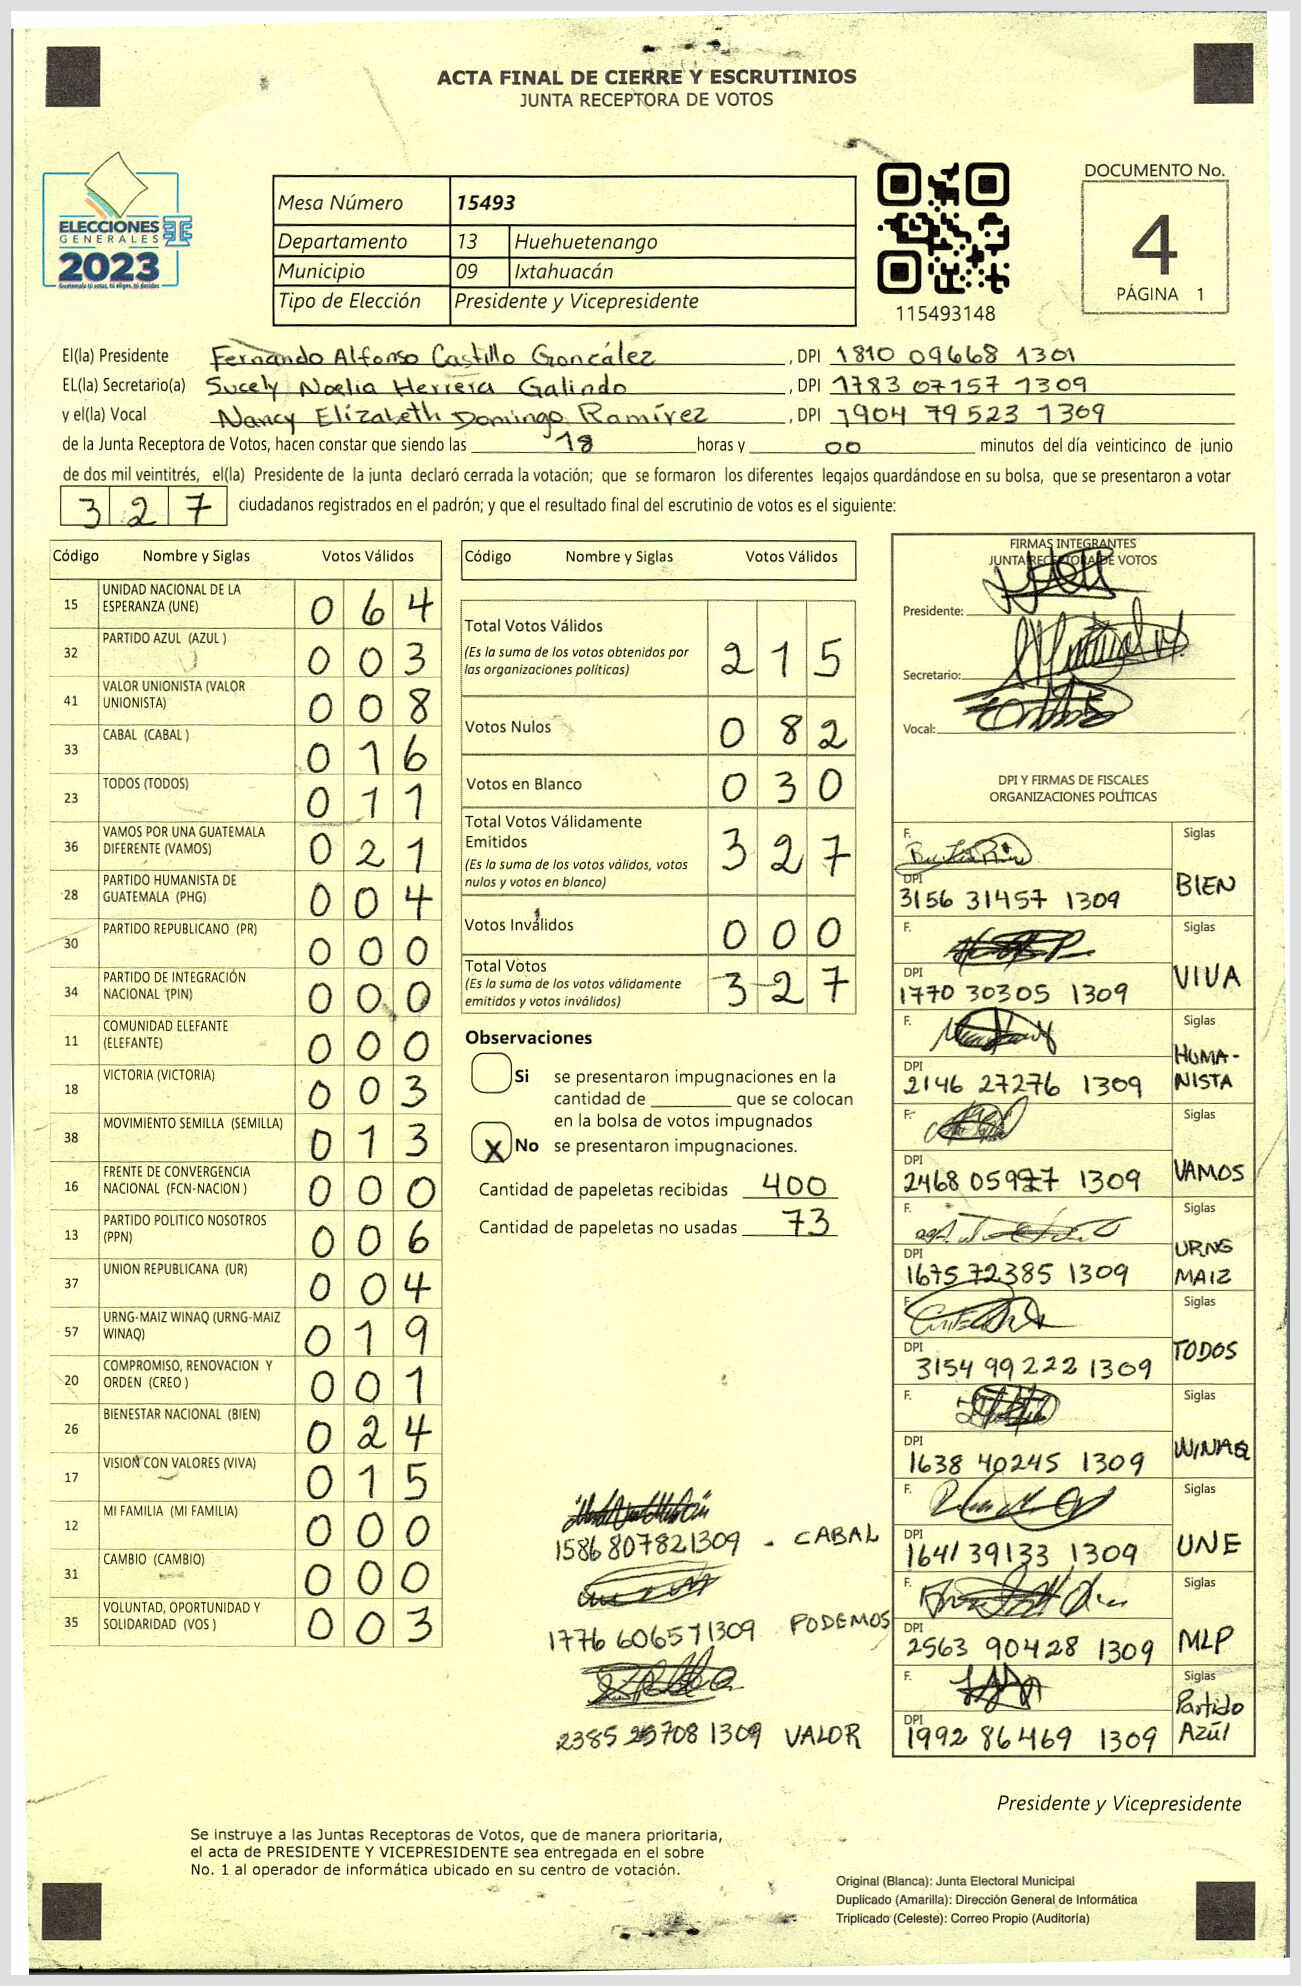 ACTA FINAL DE CIERRE Y ESCRUTINIOS
JUNTA RECEPTORA DE VOTOS
ELECCIONES
GENERALES
2023
Guatemala tú votas, tú eliges, tú decides
Mesa Número 15493
Departamento 13 Huehuetenango
Municipio 09 Ixtahuacán
Tipo de Elección Presidente y Vicepresidente
115493148
DOCUMENTO No.
4
PÁGINA 1
El(la) Presidente Fernando Alfonso Castillo González , DPI 1810 09668 1301
EL(la) Secretario(a) Sucely Noelia Herrera Galindo , DPI 1783 07157 1309
y el(la) Vocal Nancy Elizabeth Domingo Ramírez , DPI 1904 79523 1309
de la Junta Receptora de Votos, hacen constar que siendo las 18 horas y 00 minutos del día veinticinco de junio
de dos mil veintitrés, el(la) Presidente de la junta declaró cerrada la votación; que se formaron los diferentes legajos guardándose en su bolsa, que se presentaron a votar
327 ciudadanos registrados en el padrón; y que el resultado final del escrutinio de votos es el siguiente:
Código Nombre y Siglas Votos Válidos
15 UNIDAD NACIONAL DE LA ESPERANZA (UNE) 064
32 PARTIDO AZUL (AZUL ) 003
41 VALOR UNIONISTA (VALOR UNIONISTA) 008
33 CABAL (CABAL ) 016
23 TODOS (TODOS) 011
36 VAMOS POR UNA GUATEMALA DIFERENTE (VAMOS) 021
28 PARTIDO HUMANISTA DE GUATEMALA (PHG) 004
30 PARTIDO REPUBLICANO (PR) 000
34 PARTIDO DE INTEGRACIÓN NACIONAL (PIN) 000
11 COMUNIDAD ELEFANTE (ELEFANTE) 000
18 VICTORIA (VICTORIA) 003
38 MOVIMIENTO SEMILLA (SEMILLA) 013
16 FRENTE DE CONVERGENCIA NACIONAL (FCN-NACION ) 000
13 PARTIDO POLITICO NOSOTROS (PPN) 006
37 UNION REPUBLICANA (UR) 004
57 URNG-MAIZ WINAQ (URNG-MAIZ WINAQ) 019
20 COMPROMISO, RENOVACION Y ORDEN (CREO ) 001
26 BIENESTAR NACIONAL (BIEN) 024
17 VISION CON VALORES (VIVA) 015
12 MI FAMILIA (MI FAMILIA) 000
31 CAMBIO (CAMBIO) 000
35 VOLUNTAD, OPORTUNIDAD Y SOLIDARIDAD (VOS ) 003
Código Nombre y Siglas Votos Válidos
Total Votos Válidos 215
(Es la suma de los votos obtenidos por
las organizaciones políticas)
Votos Nulos 082
Votos en Blanco 030
Total Votos Válidamente
Emitidos 327
(Es la suma de los votos válidos, votos
nulos y votos en blanco)
Votos Inválidos 000
Total Votos 327
(Es la suma de los votos válidamente
emitidos y votos inválidos)
Observaciones
Si se presentaron impugnaciones en la
cantidad de ________ que se colocan
en la bolsa de votos impugnados
X No se presentaron impugnaciones.
Cantidad de papeletas recibidas 400
Cantidad de papeletas no usadas 73
1586 80782 1309 - CABAL
1776 60657 1309 PODEMOS
2385 25708 1309 VALOR
FIRMAS INTEGRANTES
JUNTA RECEPTORA DE VOTOS
Presidente:
Secretario:
Vocal:
DPI Y FIRMAS DE FISCALES
ORGANIZACIONES POLÍTICAS
F. Siglas
DPI 3156 31457 1309 BIEN
F. Siglas
DPI 1770 30305 1309 VIVA
F. Siglas
DPI 2146 27276 1309 HUMA-
NISTA
F. Siglas
DPI 2468 05977 1309 VAMOS
F. Siglas
DPI 1675 72385 1309 URNG
MAIZ
F. Siglas
DPI 3154 99222 1309 TODOS
F. Siglas
DPI 1638 40245 1309 WINAQ
F. Siglas
DPI 1641 39133 1309 UNE
F. Siglas
DPI 2563 90428 1309 MLP
F. Siglas
DPI 1992 86469 1309 Partido
Azúl
Presidente y Vicepresidente
Se instruye a las Juntas Receptoras de Votos, que de manera prioritaria,
el acta de PRESIDENTE Y VICEPRESIDENTE sea entregada en el sobre
No. 1 al operador de informática ubicado en su centro de votación.
Original (Blanca): Junta Electoral Municipal
Duplicado (Amarilla): Dirección General de Informática
Triplicado (Celeste): Correo Propio (Auditoría)